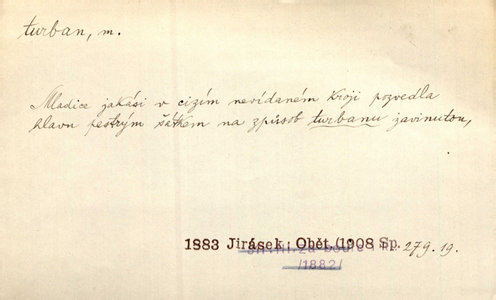 turban, m.
Mladice jakási v cizím nevídaném kroji pozvedla
hlavu pestrým šátkem na způsob turbanu zavinutou,
1883 Jirásek: Oběť (1908 Sp. 279.19.
/1882/